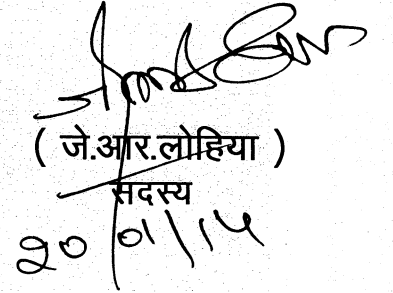 ( जे.आर.लोहिया )
सदस्य
२०/०१/१५